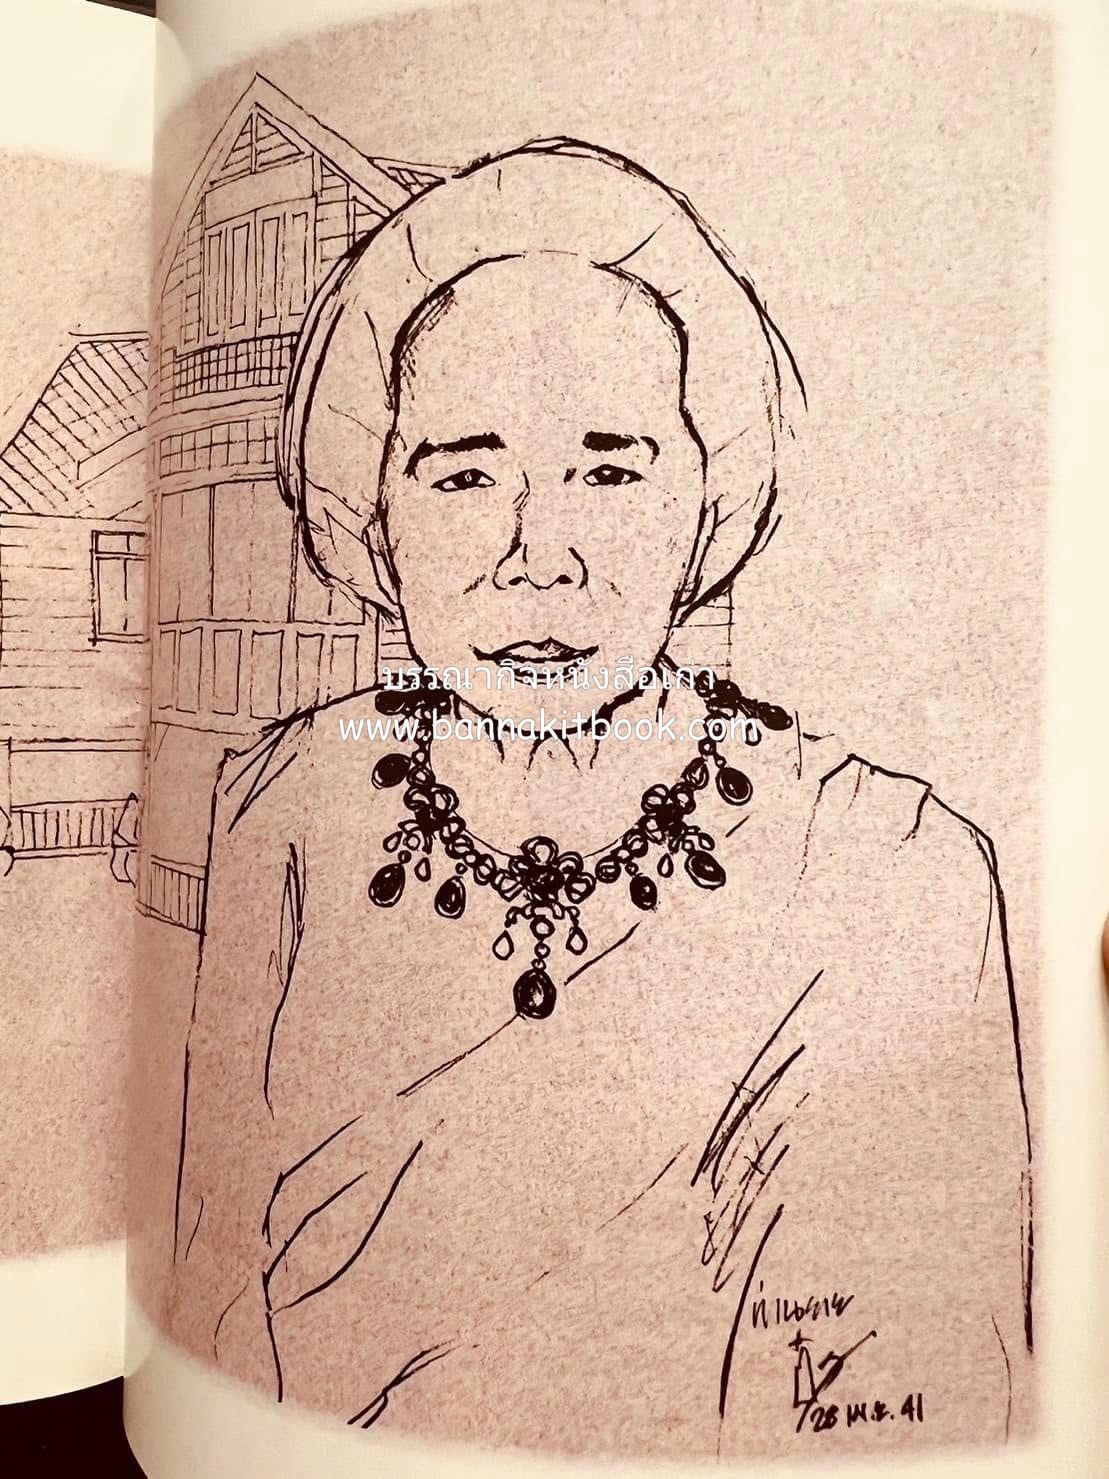 บรรณากิจหนังสือเก่า
www.bannakitbook.com
ท่านยาย
28 เม.ย. 41